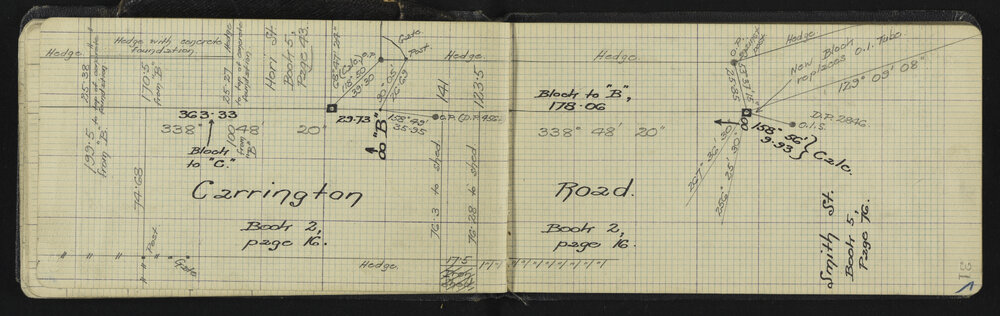 Hedge.
Hedge with concrete
foundation
199·5 to top of concrete
from "B" foundation
25·38
170·5
from "B"
25·27
Hedge
to top of concrete
foundation
Hori St.
Book 5,
Page 43.
O.P.
(Calc)
Gate
Post
Hedge.
141
123·5
363·33
338° 48' 20"
100
from
"B"
Block
to "C."
29·73
"B"
158° 49'
35·95
O.P.
76·3 to shed
76·28 to shed
74·68
Carrington
Book 2,
page 16.
Post
Gate
Hedge.
17·5
Hedge.
Block to "B",
178·06
338° 48' 20"
Road.
Book 2,
page 16.
O.P.
25·85
Hedge
New Block
replaces O.I. Tube.
129° 09' 08"
D.P. 2846
O.I.S.
158° 56'
9·93
Calc.
267° 36' 30"
256° 25' 30"
Smith St.
Book 5,
Page 76.
31